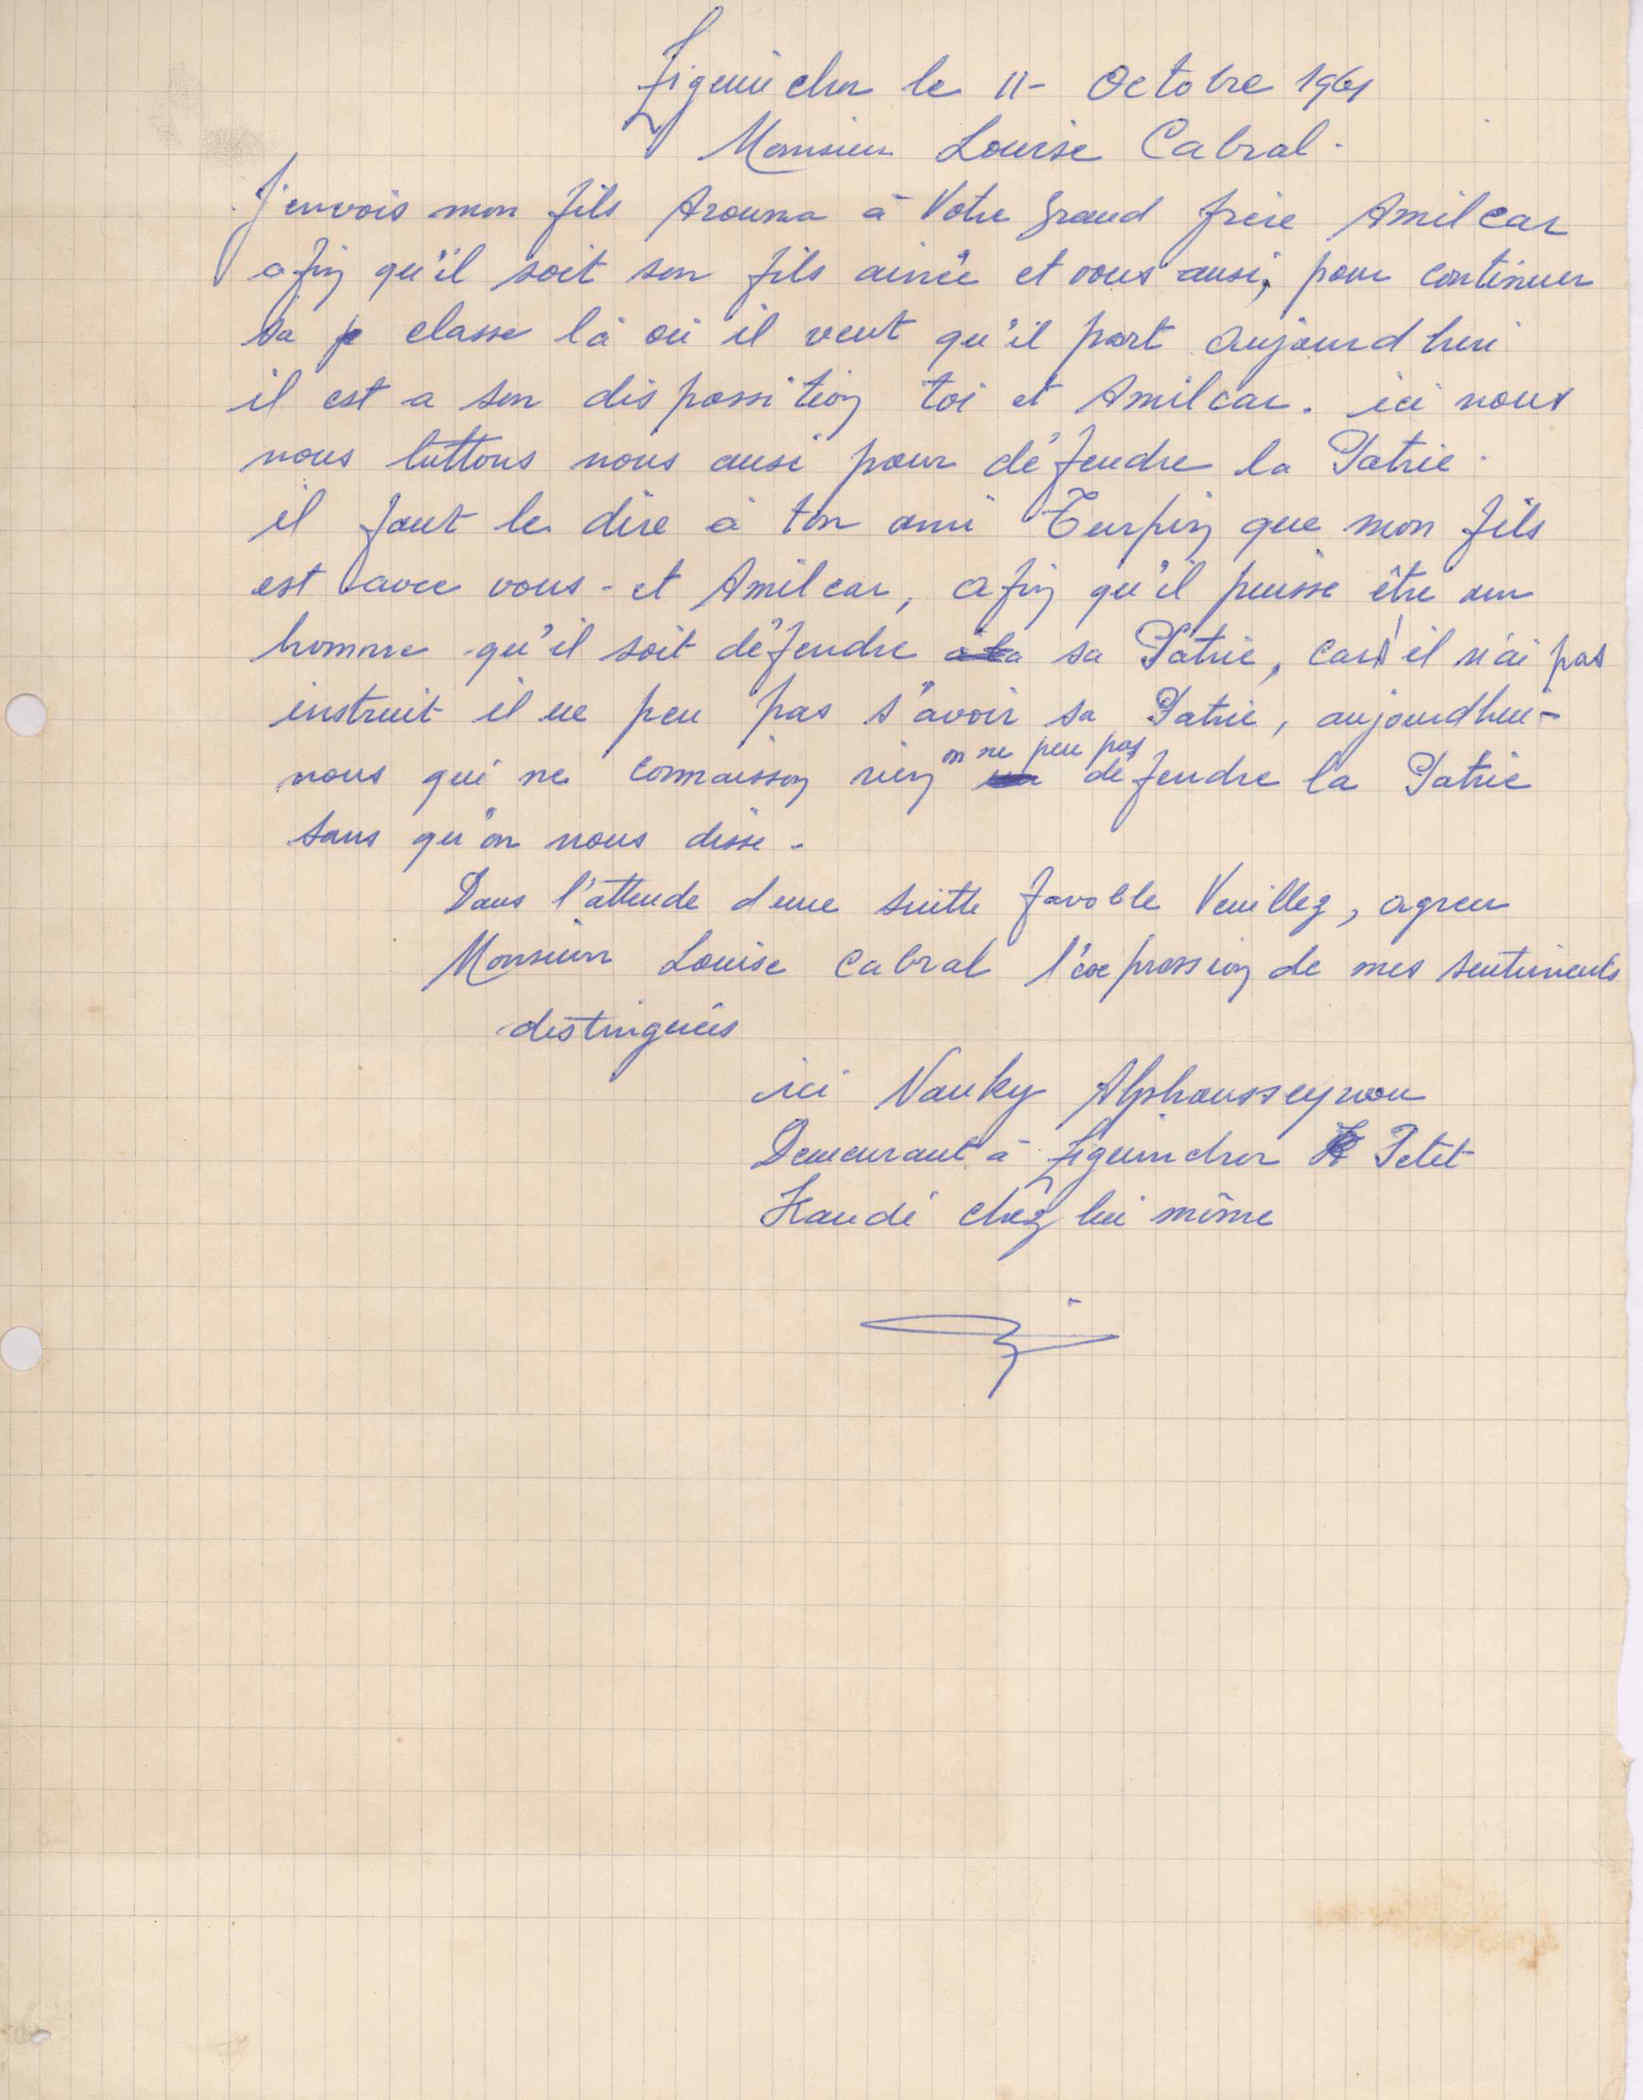 Ziguinchor le 11- Octobre 1961
Monsieur Louise Cabral.
J'envois mon fils Arouna à Votre grand frère Amilcar
afin qu'il soit son fils ainée et vous ausi, pour continuer
sa classe là où il veut qu'il part aujourd hui
il est a son dispossition toi et Amilcar. ici nous
nous luttons nous ausi pour défendre la Patrie.
il faut le dire à ton ami Turpin que mon fils
est avec vous - et Amilcar, afin qu'il puisse être un
homme qu'il soit défendre sa Patrie, car il n'ai pas
instruit il ne peu pas s'avoir sa Patrie, aujourdhui-
nous qui ne connaisson rien on ne peu pas défendre la Patrie
sans qu'on nous disse.
Dans l'attende d'une suitte favoble Veuillez, agreer
Monsieur Louise Cabral l'expression de mes sentiments
distinguées
ici Nanky Alphousseynou
Demeurant à Ziguinchor Petit
Kandé chez lui même